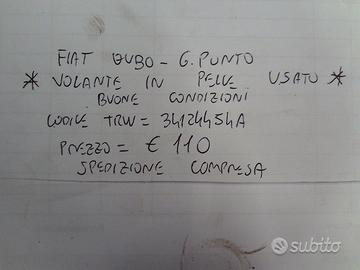 FIAT QUBO - G. PUNTO
* VOLANTE IN PELLE USATO *
BUONE CONDIZIONI
CODICE TRW = 34124454A
PREZZO = € 110
SPEDIZIONE COMPRESA
subito